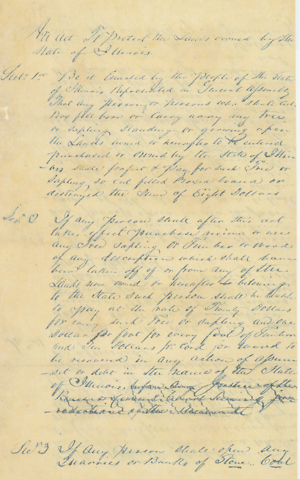 An Act To Protect the Lands owned by the
State of Illinois
Sect: 1st Be it Enacted by the People of the State
of Illinois Represented in General Assembly
That any Person or Persons who shall Cut
Box or carry away any Tree
or Sapling Standing or growing upon
the Lands owned or hereafter to be entered
purchased or owned by the State of Illin
ois shall forfeit & Pay for each Such Tree or
Sapling, so Cut felled Boxed bored or
destroyed the Sum of Eight Dollars
Sec 2 If any Person shall after this act
takes effect Purchase receive or use
any Tree Sapling, or Timber or Wood
of any description which shall have
been taken off of or from any of the
Lands now owned or hereafter belonging
to the State Such Person shall be liable
to pay at the rate of Dollars
for every Such Tree or Sapling and one
dollar for foot for every foot of Timber
and Ten Dollars to be
recovered in any action of assum
sit or debt in the name of the State
of Illinois before Any Justice of the
Sec 3 If Any Person shall open any
Quarries or Banks of Stone Coal